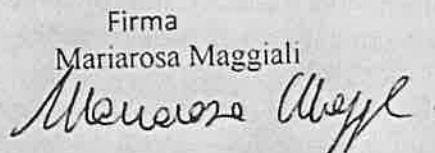 Firma
Mariarosa Maggiali
Mariarosa Maggl